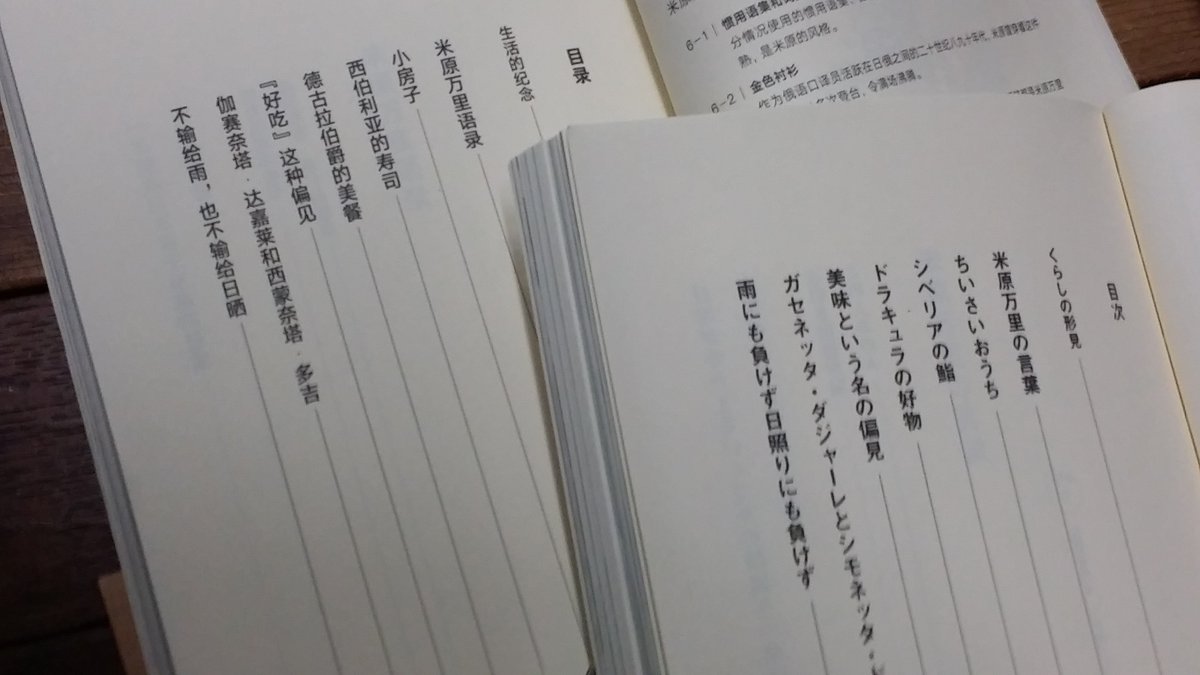 目录
生活的纪念
米原万里语录
小房子
西伯利亚的寿司
德古拉伯爵的美餐
『好吃』这种偏见
伽赛奈塔·达嘉莱和西蒙奈塔·多吉
不输给雨，也不输给日晒
6-1｜惯用语集和
分情况使用的惯用语集、
熟，是米原的风格。
6-2｜金色衬衫
作为俄语口译员活跃在日俄之间的二十世纪八九十年代，米原曾穿着这件
多次登台，令满场沸腾。
目次
くらしの形見
米原万里の言葉
ちいさいおうち
シベリアの鮨
ドラキュラの好物
美味という名の偏見
ガセネッタ・ダジャーレとシモネッタ・
雨にも負けず日照りにも負けず